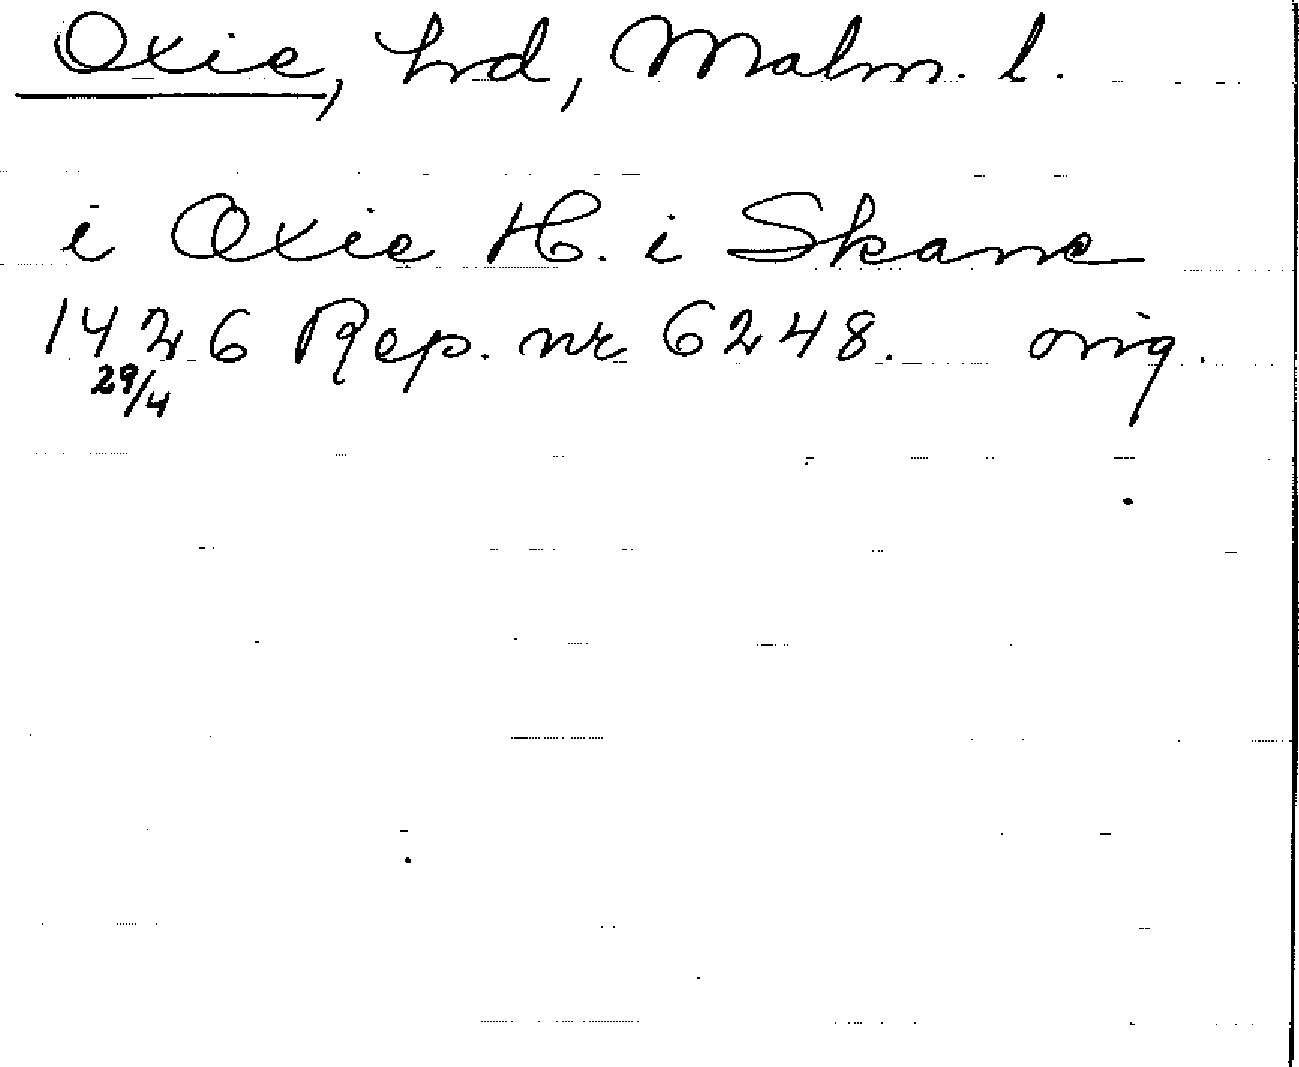 Oxie, hrd, Malm. l.
i Oxie H. i Skane
1426 Rep. nr 6248. orig.
29/4